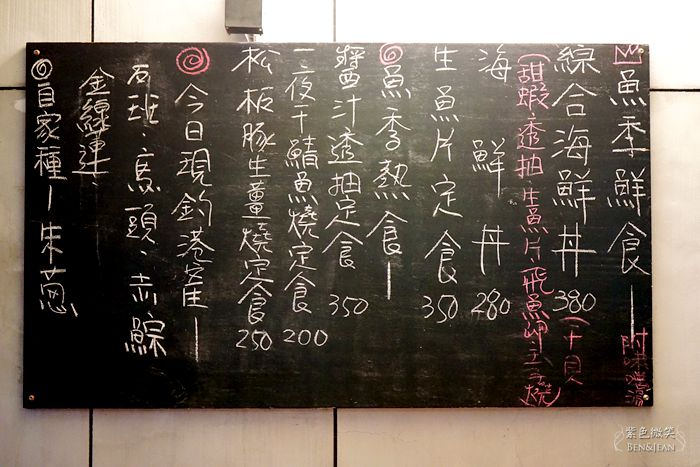 魚季鮮食—附味噌湯
綜合海鮮丼380(干貝
(甜蝦.透抽.生魚片.飛魚卵.玉子燒)
海鮮丼280
生魚片定食350
魚季熱食—
醬汁透抽定食350
一夜干鯖魚燒定食200
松板豚生薑燒定食250
今日現釣港產—
石班、馬頭、赤鯮
金線連、
自家種—朱蔥
紫色微笑
BEN&JEAN